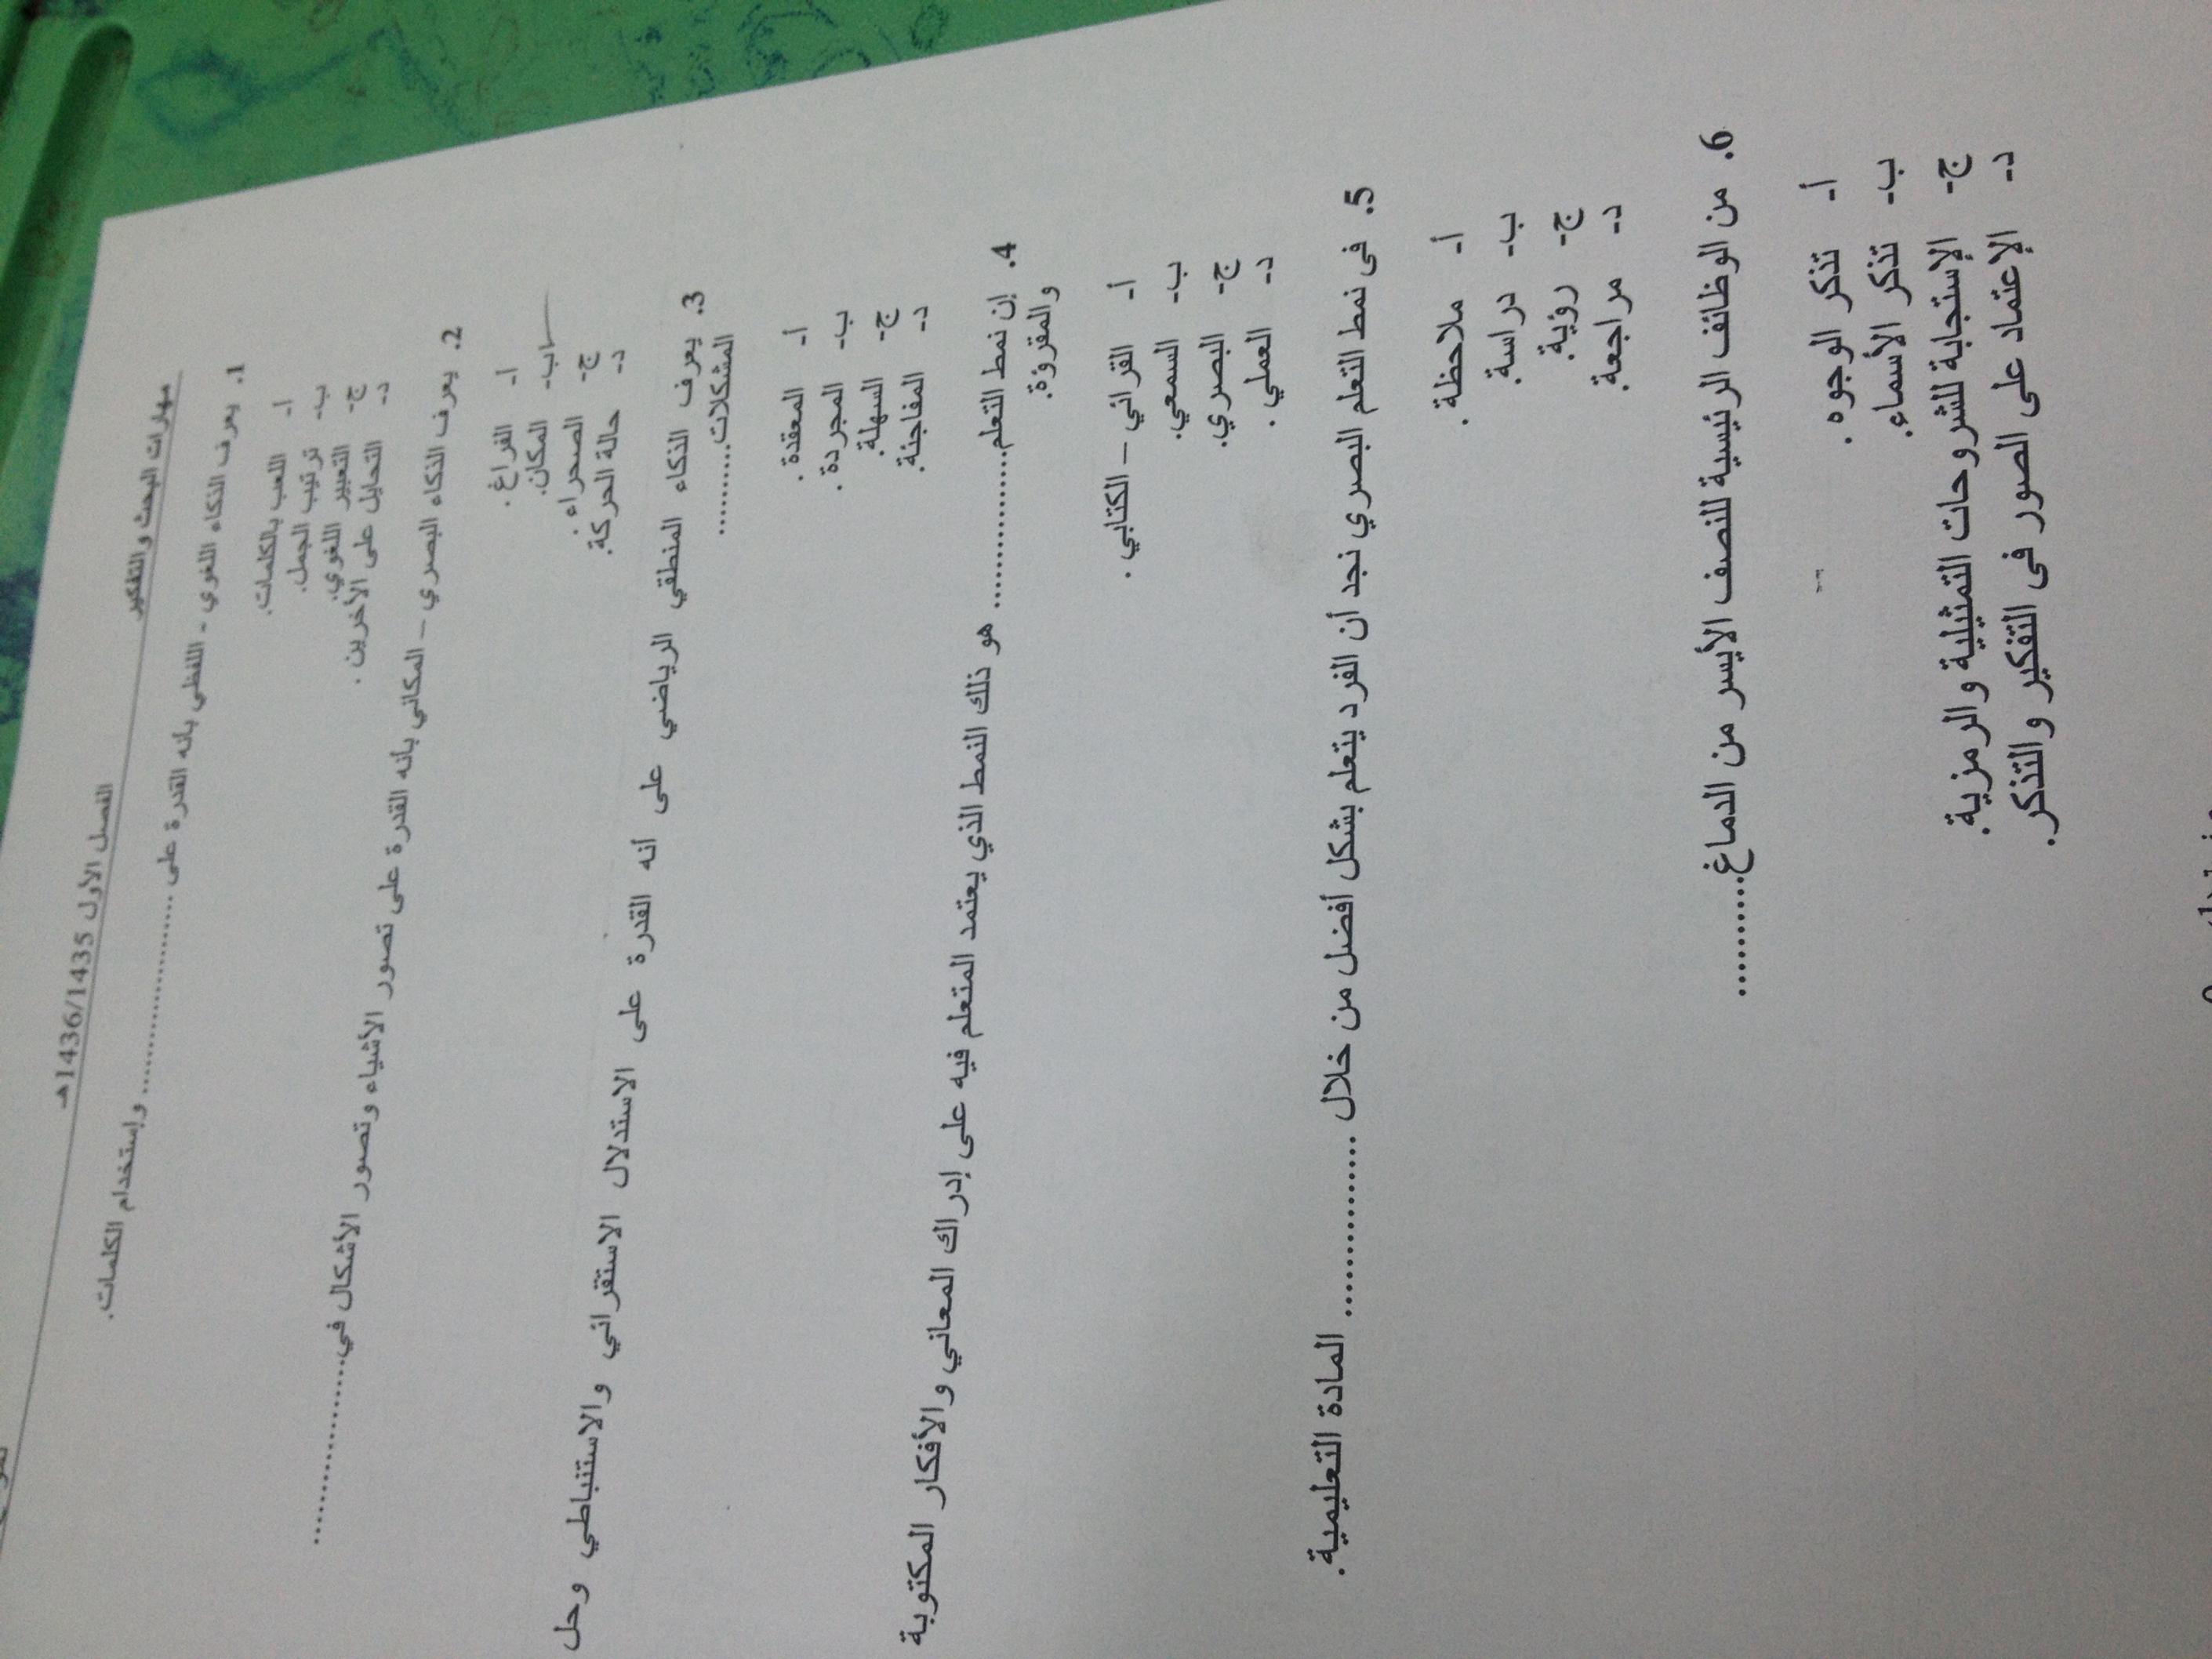 الفصل الأول 1436/1435هـ
مهارات البحث والتفكير
1. يعرف الذكاء اللغوي - اللفظي بأنه القدرة على .................. وإستخدام الكلمات.
أ- اللعب بالكلمات.
ب- ترتيب الجمل.
ج- التعبير اللغوي.
د- التحايل على الأخرين .
2. يعرف الذكاء البصري – المكاني بأنه القدرة على تصور الأشياء وتصور الأشكال في..................
أ- الفراغ .
ب- المكان.
ج- الصحراء .
د- حالة الحركة.
3. يعرف الذكاء المنطقي الرياضي على أنه القدرة على الاستدلال الاستقرائي والاستنباطي وحل
المشكلات..........
أ- المعقدة .
ب- المجردة .
ج- السهلة.
د- المفاجئة.
4. إن نمط التعلم................ هو ذلك النمط الذي يعتمد المتعلم فيه على إدراك المعاني والأفكار المكتوبة
والمقروؤة.
أ- القرائي – الكتابي .
ب- السمعي.
ج- البصري.
د- العملي .
5. فى نمط التعلم البصري نجد أن الفرد يتعلم بشكل أفضل من خلال ................ المادة التعليمية.
أ- ملاحظة .
ب- دراسة.
ج- رؤية.
د- مراجعة.
6. من الوظائف الرئيسية للنصف الأيسر من الدماغ...........
أ- تذكر الوجوه .
ب- تذكر الأسماء.
ج- الإستجابة للشروحات التمثيلية والرمزية.
د- الإعتماد على الصور فى التفكير والتذكر.